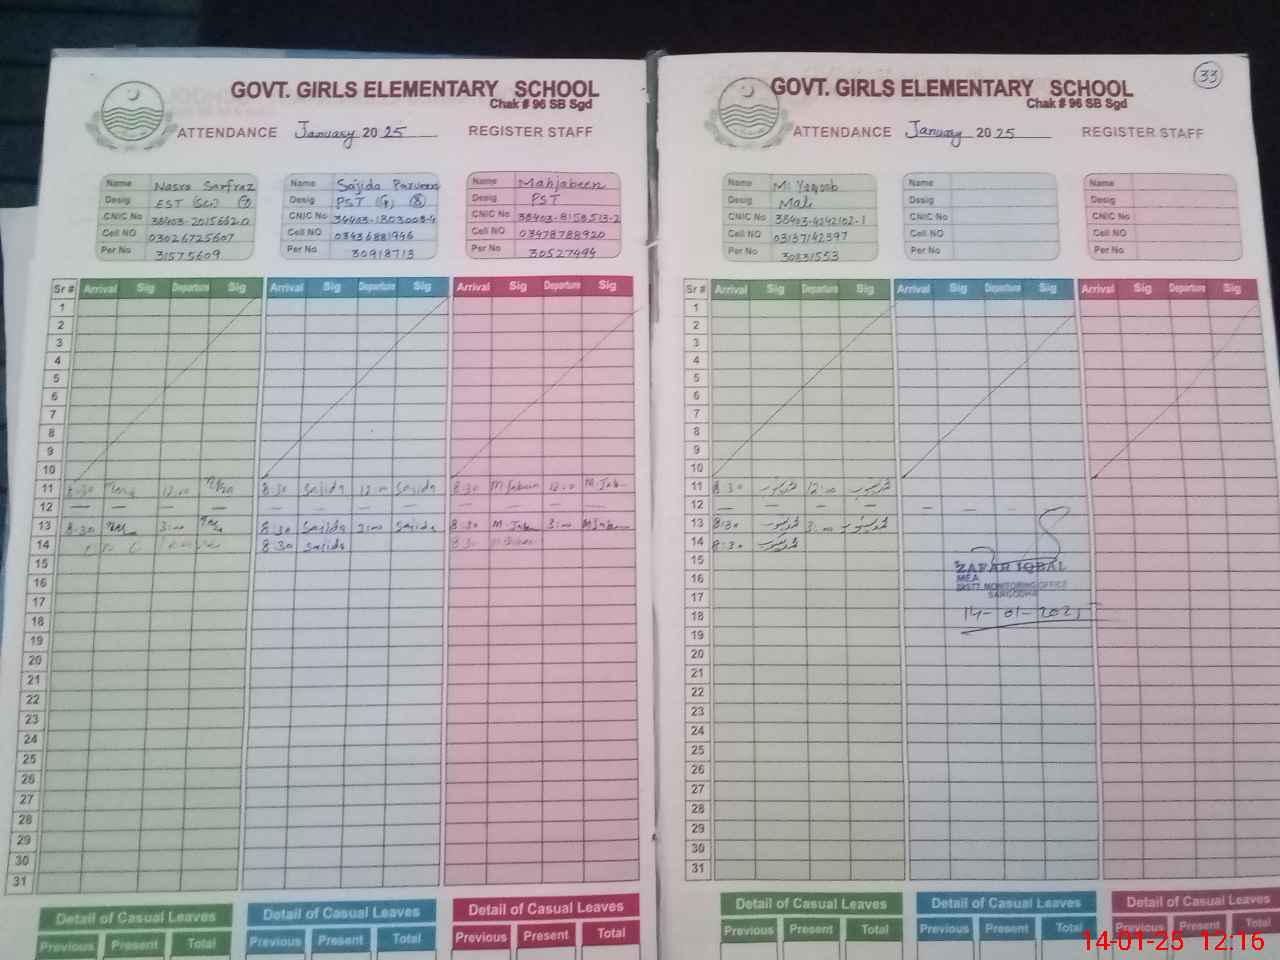 GOVT. GIRLS ELEMENTARY SCHOOL
Chak # 96 SB Sgd
ATTENDANCE January 2025 REGISTER STAFF
Name Nasra Sarfraz
Desig EST
CNIC No 38403-2015662-0
Cell NO 03026725607
Per No 31575609
Name Sajida Parveen
Desig PST
CNIC No 38403-1803008-4
Cell NO 03436881946
Per No 30918713
Name Mahjabeen
Desig PST
CNIC No 38403-8158513-2
Cell NO 03478788920
Per No 30527494
Sr # Arrival Sig Departure Sig Arrival Sig Departure Sig Arrival Sig Departure Sig
1
2
3
4
5
6
7
8
9
10
11 8:30 12:00 8:30 Sajida 12:00 Sajida 8:30 12:00
12 — — — — — — — — — — — —
13 8:30 3:00 8:30 Sajida 3:00 Sajida 8:30 3:00
14 8:30 Sajida 8:30
15
16
17
18
19
20
21
22
23
24
25
26
27
28
29
30
31
Detail of Casual Leaves Detail of Casual Leaves Detail of Casual Leaves
Previous Present Total Previous Present Total Previous Present Total
33
GOVT. GIRLS ELEMENTARY SCHOOL
Chak # 96 SB Sgd
ATTENDANCE January 2025 REGISTER STAFF
Name M. Yaqoob
Desig Mali
CNIC No 38403-4242102-1
Cell NO 03137142397
Per No 30831553
Name
Desig
CNIC No
Cell NO
Per No
Name
Desig
CNIC No
Cell NO
Per No
Sr # Arrival Sig Departure Sig Arrival Sig Departure Sig Arrival Sig Departure Sig
1
2
3
4
5
6
7
8
9
10
11 8:30 12:00
12 — — — — — — — —
13 8:30 3:00
14 8:30
15
16
17
18
19
20
21
22
23
24
25
26
27
28
29
30
31
ZAFAR IQBAL
MEA
DISTT. MONITORING OFFICE
SARGODHA
14-01-2025
Detail of Casual Leaves Detail of Casual Leaves Detail of Casual Leaves
Previous Present Total Previous Present Total Previous Present Total
14-01-25 12:16